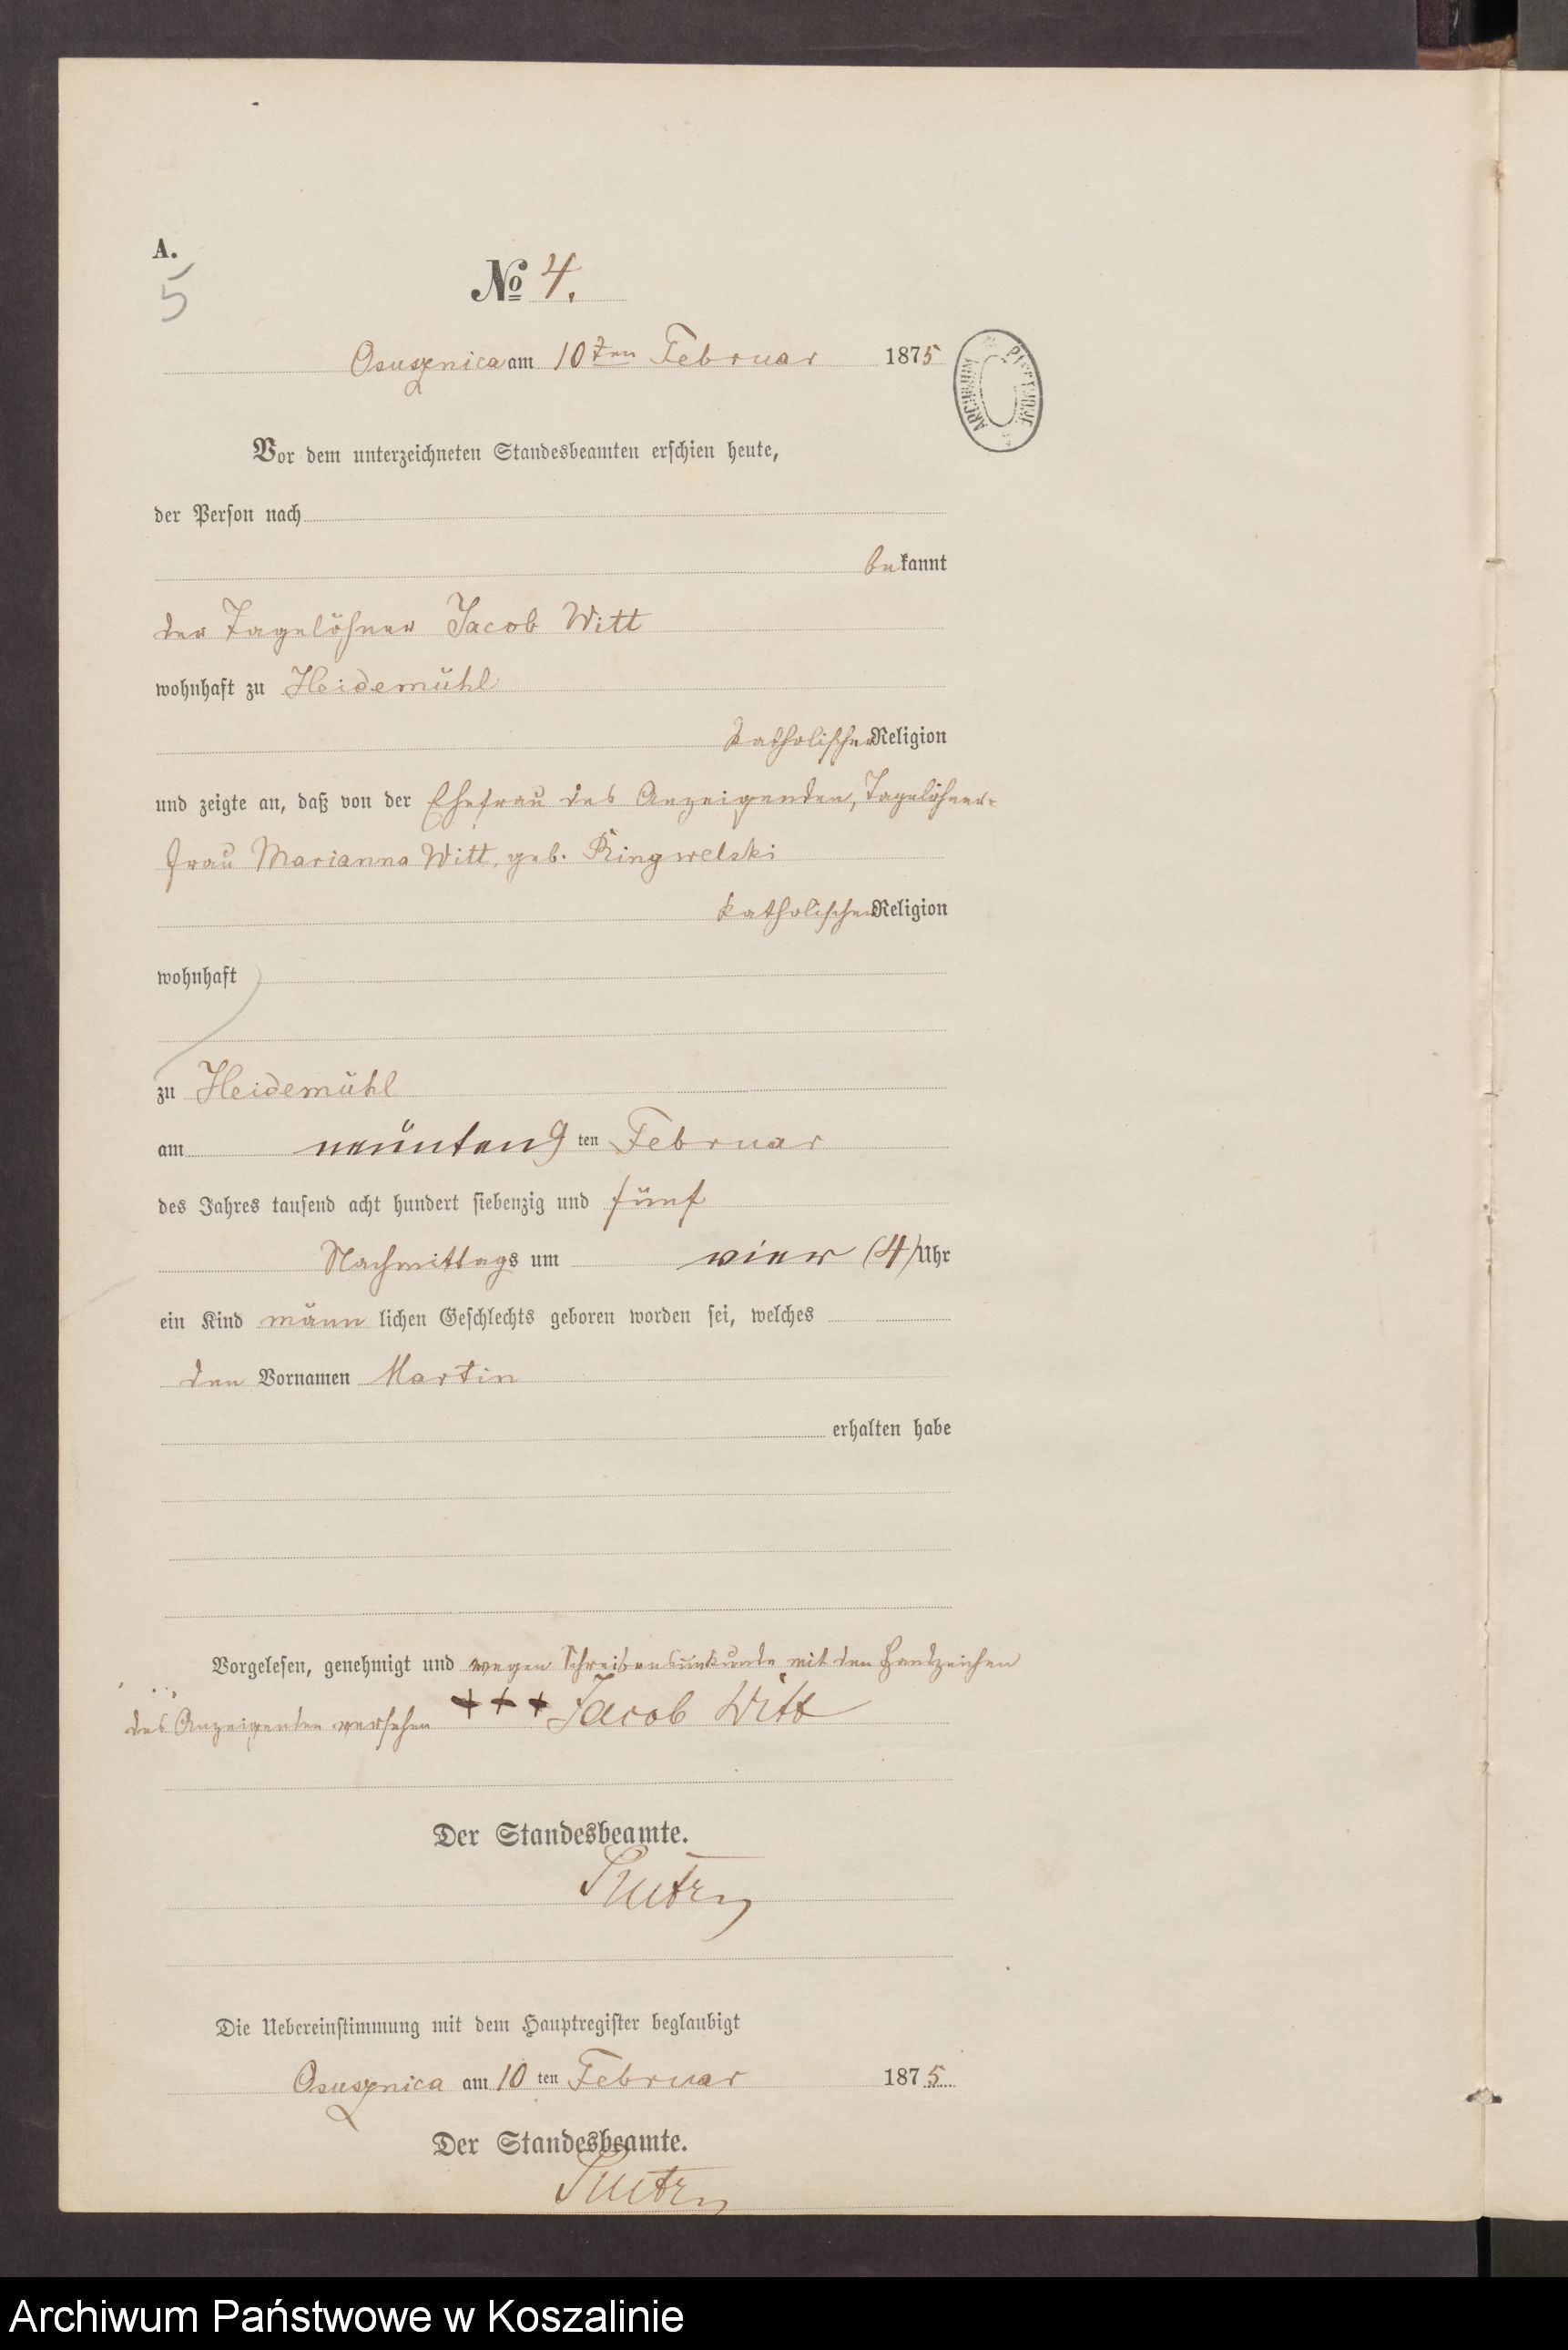 A.
5
№ 4.
Osusznica am 10ten Februar 1875
ARCHIWUM
Vor dem unterzeichneten Standesbeamten erschien heute,
der Person nach
bekannt
der Tagelöhner Jacob Witt
wohnhaft zu Heidemühl
katholischer Religion
und zeigte an, daß von der Ehefrau des Anzeigenden, Tagelöhner-
frau Marianna Witt, geb. Ringwelski
katholischer Religion
wohnhaft
zu Heidemühl
am neunten 9 ten Februar
des Jahres tausend acht hundert siebenzig und fünf
Nachmittags um vier (4) Uhr
ein Kind männ lichen Geschlechts geboren worden sei, welches
den Vornamen Martin
erhalten habe
Vorgelesen, genehmigt und wegen Schreibensunkunde mit den Handzeichen
des Anzeigenden versehen +++ Jacob Witt
Der Standesbeamte.
Die Uebereinstimmung mit dem Hauptregister beglaubigt
Osusznica am 10 ten Februar 1875
Der Standesbeamte.
Archiwum Państwowe w Koszalinie